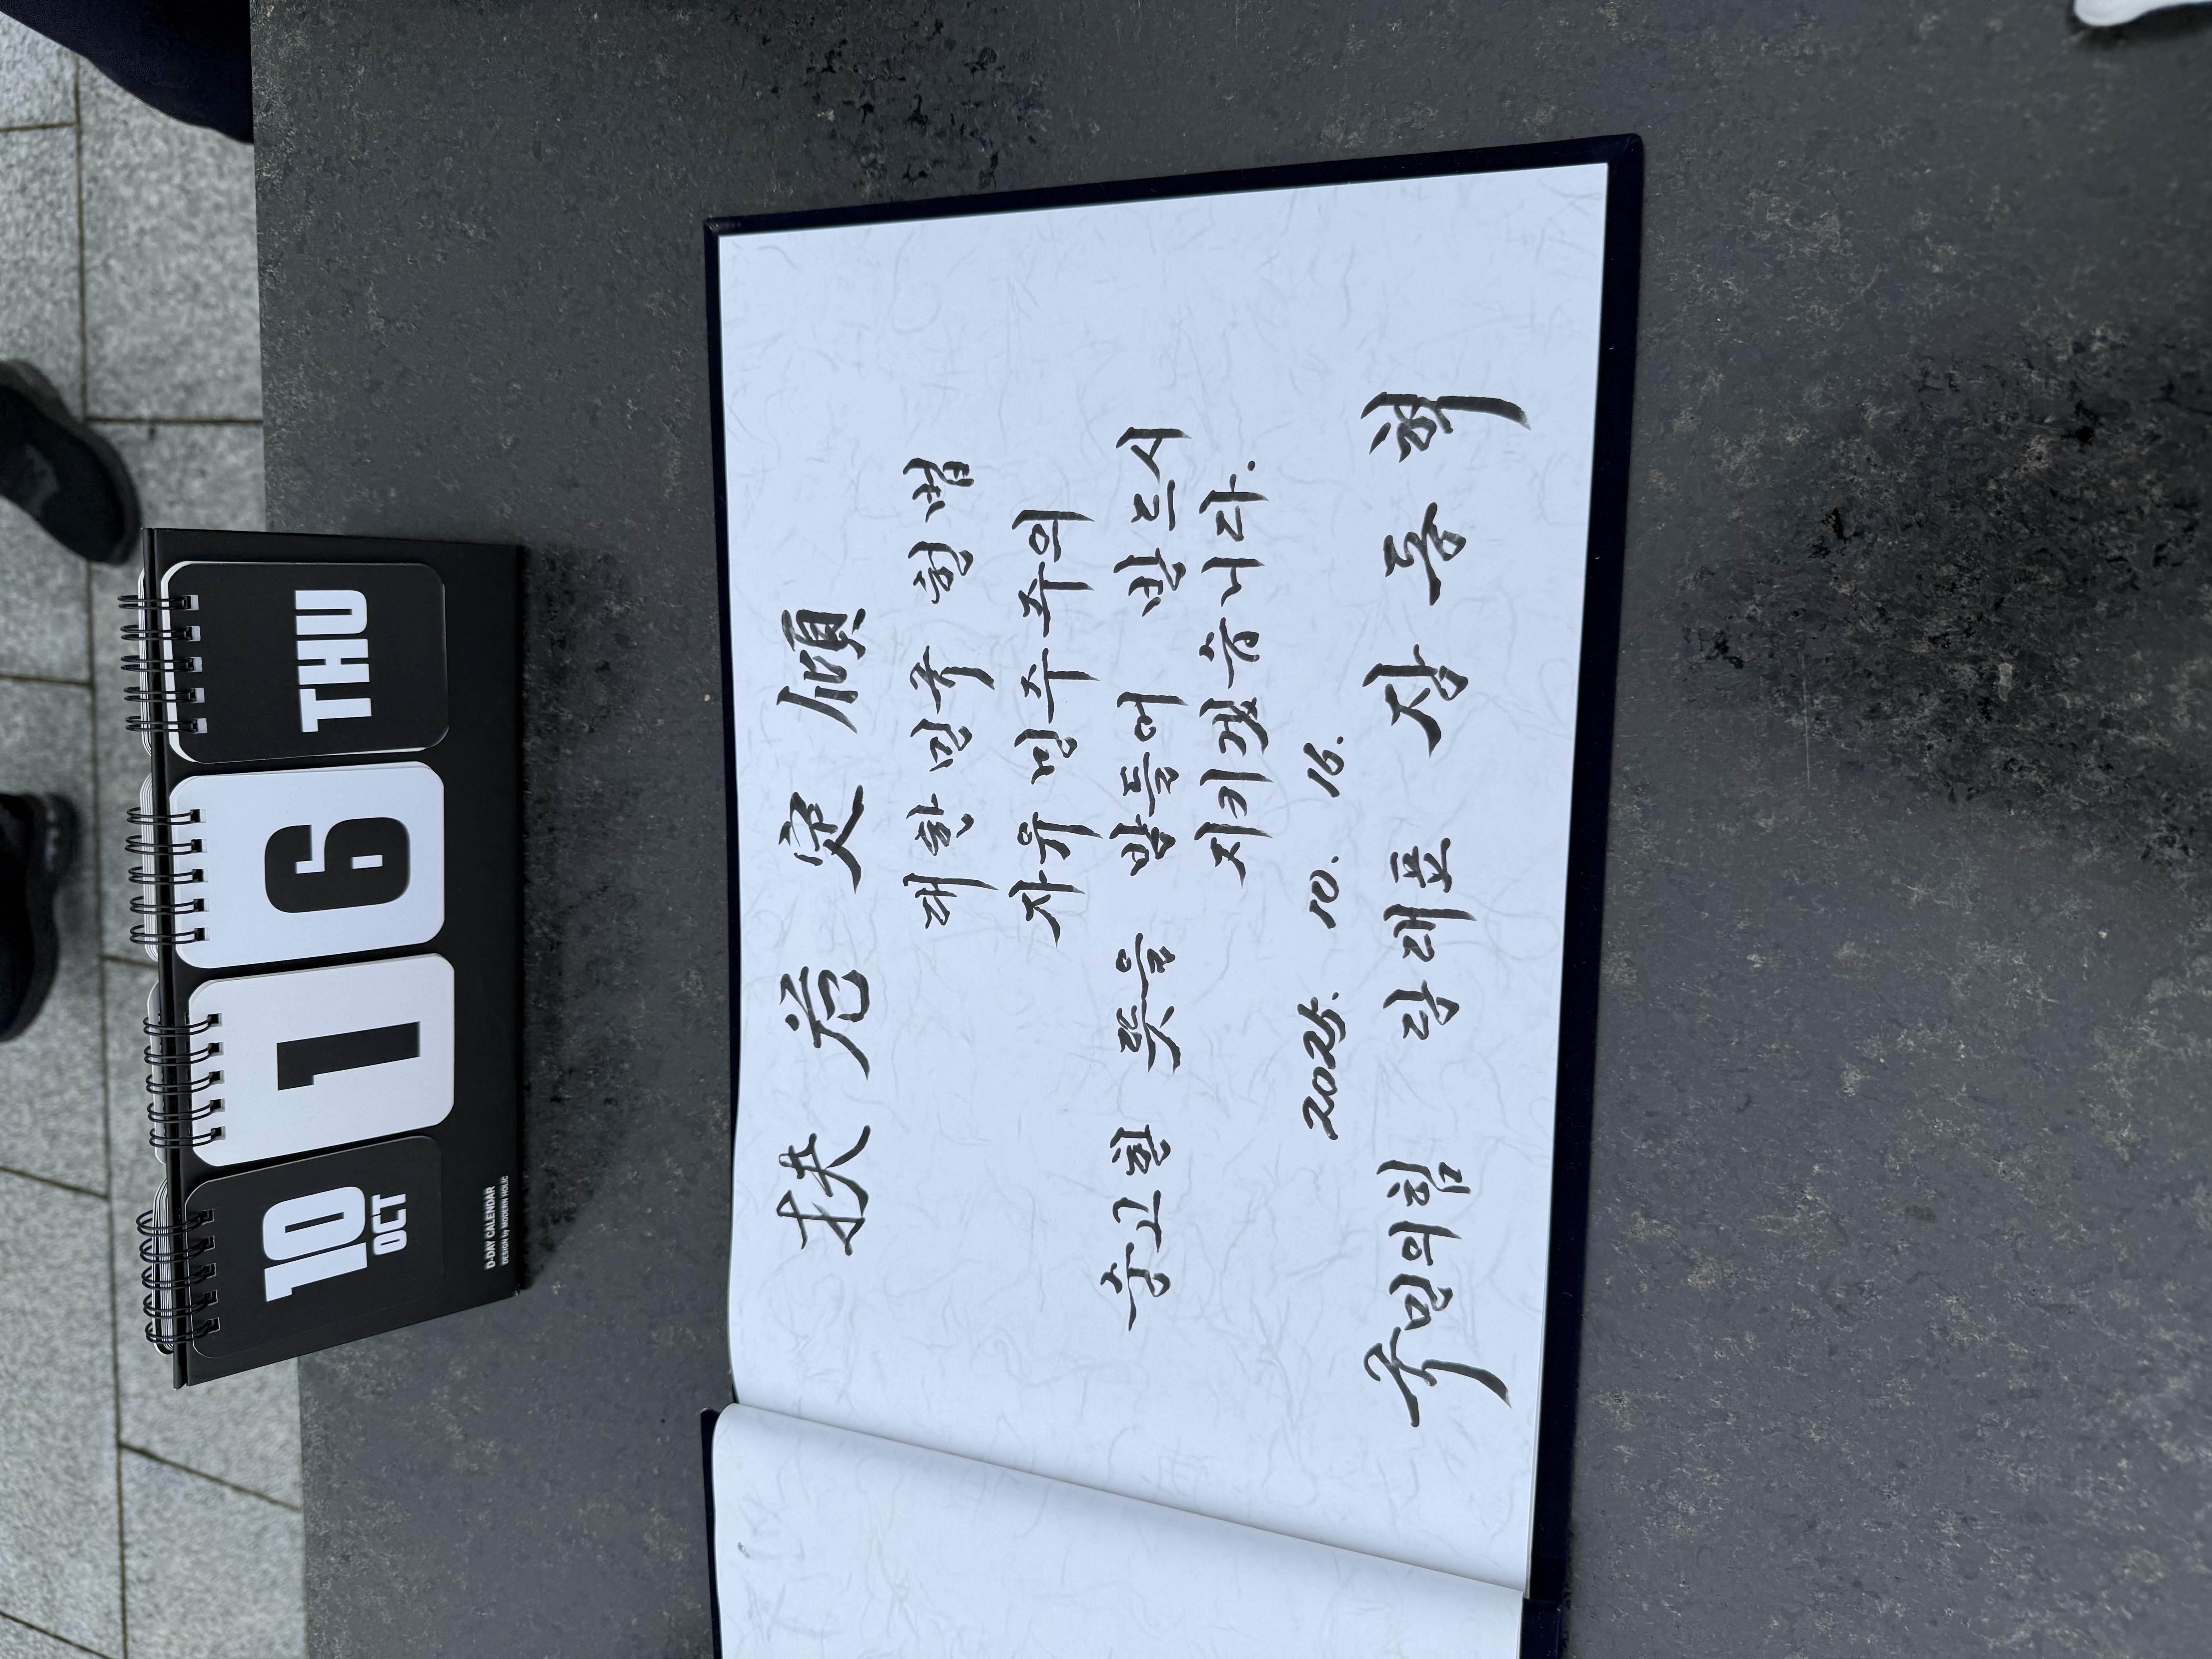 10
OCT
1
6
THU
D-DAY CALENDAR
DESIGN by MODERN HOLIC
扶危定傾
대한민국 헌법
자유민주주의
숭고한 뜻을 받들어 반드시
지키겠습니다.
2025. 10. 16.
국민의힘 당대표 장동혁